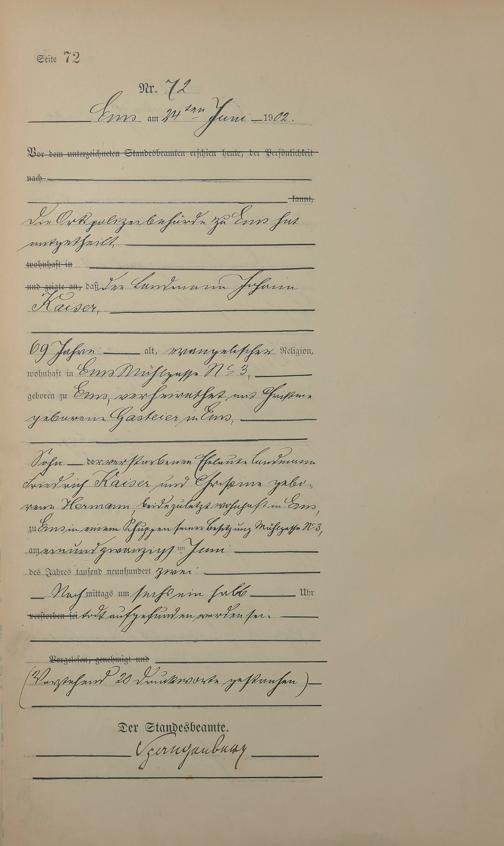 Seite 72
Nr. 72
Ems am 24ten Juni 1902.
Vor dem unterzeichneten Standesbeamten erschien heute, der Persönlichkeit
nach
kannt,
die Ortspolizeibehörde zu Ems hat
mitgetheilt,
wohnhaft in
und zeigte an, daß der Landmann Johann
Kaiser,
69 Jahre alt, evangelischer Religion,
wohnhaft in Ems Mühlgasse No 3,
geboren zu Ems, verheirathet mit Christine
geborene Gasteier in Ems,
Sohn der verstorbenen Eheleute Landmann
Friedrich Kaiser und Christine gebo-
rene Hermann, beide zuletzt wohnhaft in Ems,
zu Ems in einem Schuppen seiner Besitzung Mühlgasse No 3,
am einundzwanzigsten Juni
des Jahres tausend neunhundert zwei
Nachmittags um sechs ein halb Uhr
verstorben sei todt aufgefunden worden sei.
Vorgelesen, genehmigt und
(Vorstehend 20 Druckworte gestrichen)
Der Standesbeamte.
Spangenberg